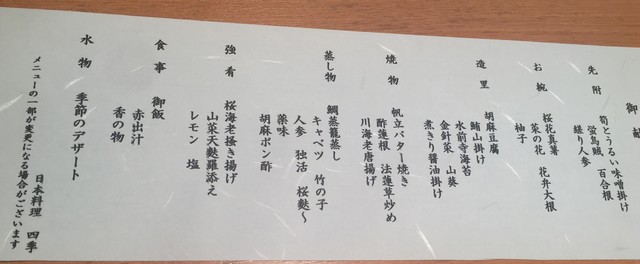 御献
先附
筍とうるい味噌掛け
蛍烏賊 百合根
縒り人参
お椀
桜花真薯
菜の花 花弁大根
柚子
造里
胡麻豆腐
鮪山掛け
水前寺海苔
金針菜 山葵
煮きり醤油掛け
焼物
帆立バター焼き
酢蓮根 法蓮草炒め
川海老唐揚げ
蒸し物
鯛蒸籠蒸し
キャベツ 竹の子
人参 独活 桜麩〜
薬味
胡麻ポン酢
強肴
桜海老掻き揚げ
山菜天麩羅添え
レモン 塩
食事
御飯
赤出汁
香の物
水物
季節のデザート
日本料理 四季
メニューの一部が変更になる場合がございます